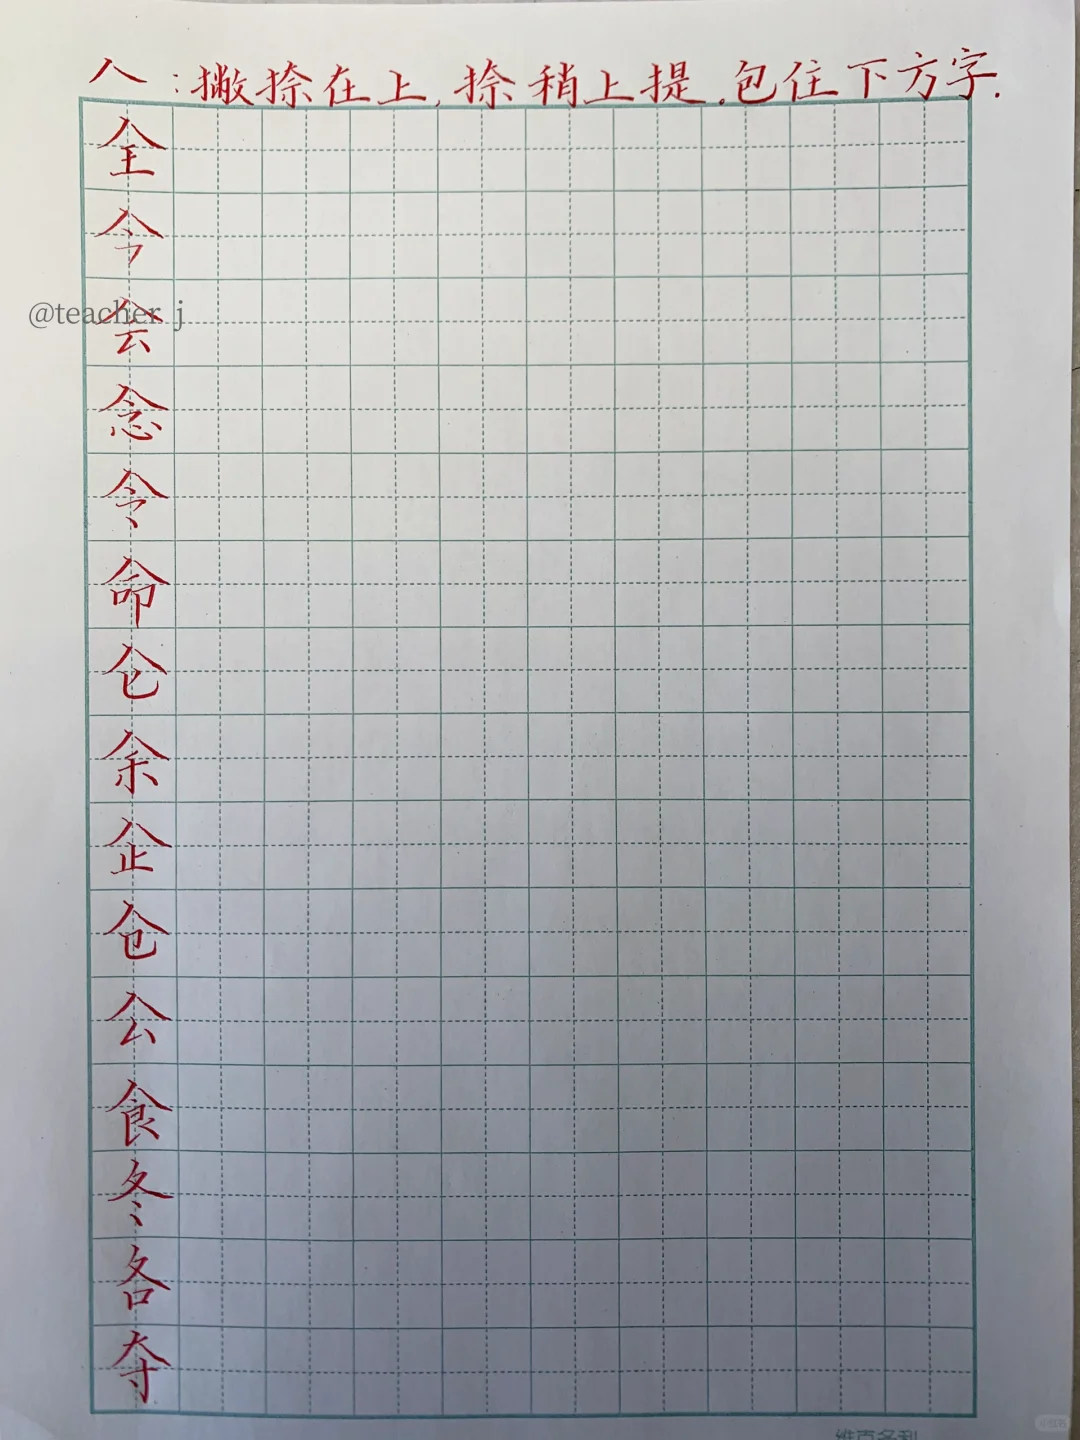 人：撇捺在上，捺稍上提。包住下方字.
全
今
@teacher j
会
念
令
命
仑
余
企
仓
公
食
冬
各
夺